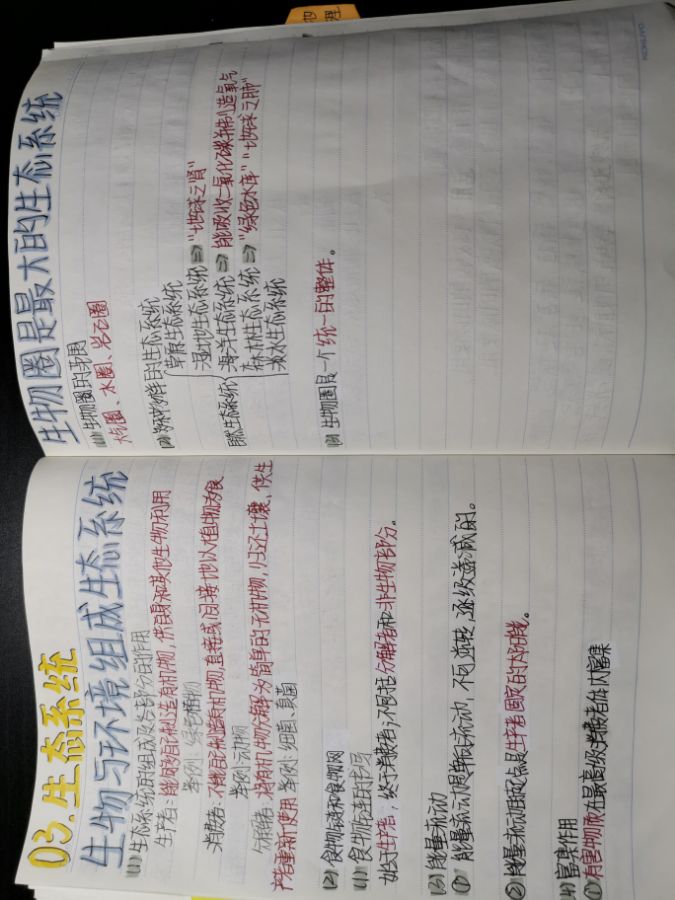 03.生态系统
生物与环境组成生态系统
(1)生态系统的组成及各部分的作用
生产者:能够自己制造有机物,供自身和其他生物利用
举例:绿色植物
消费者:不能自己制造有机物,直接或间接地以植物为食
举例:动物
分解者:将有机物分解为简单的无机物,归还土壤,供生
产者重新使用 举例:细菌、真菌
(2)食物链和食物网
(1)食物链的书写
始于生产者,终于消费者;不包括分解者和非生物部分。
(3)能量流动
①能量流动是单向流动,不可逆转,逐级递减的。
②能量流动起点是生产者固定的太阳能。
(4)富集作用
①有害物质在最高级消费者体内富集
生物圈是最大的生态系统
(1)生物圈的范围
大气圈、水圈、岩石圈
(2)多种多样的生态系统
自然生态系统
草原生态系统
湿地生态系统⇒“地球之肾”
海洋生态系统⇒能吸收二氧化碳并制造氧气
森林生态系统⇒“绿色水库”“地球之肺”
淡水生态系统
(3)生物圈是一个统一的整体。
物理
KOKUYO